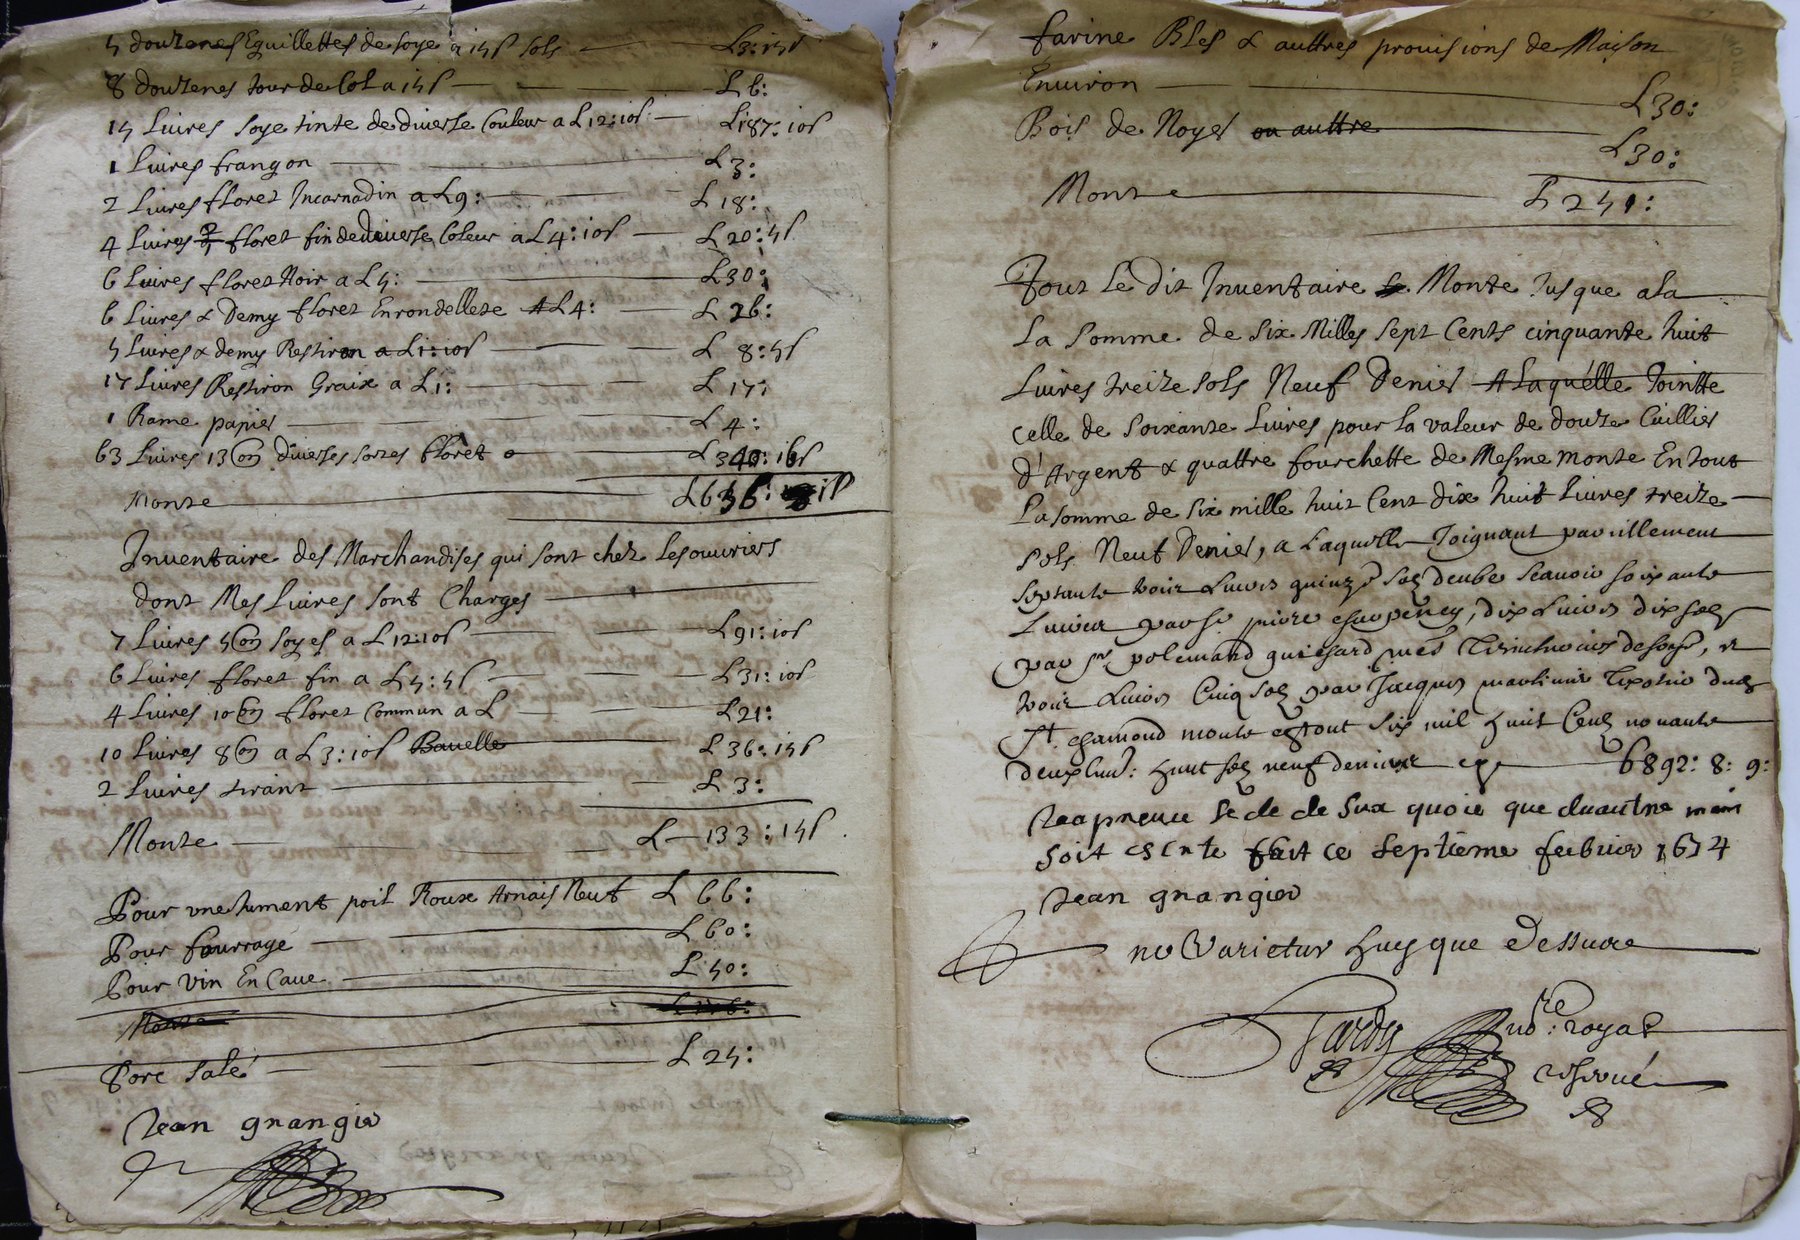 5 douzenes Eguillettes de soye a 15s sols L3:15s
8 douzenes tour de Col a 15s L6:
15 Livres soye tinte de diverse Couleur a L12:10s L187:10s
1 Livres frangon L3:
2 Livres floret Incarnadin a L9: L18:
4 Livres floret fin de diverse Coleur a L4:10s L20:5s
6 Livres floret Noir a L5: L30:
6 Livres & Demy floret Enrondellete A L4: L26:
5 Livres & demy Restiron a L1:10s L8:5s
17 Livres Restiron Graix a L1: L17:
1 Rame papier L4:
63 Livres 13 on diverses sortes floret L340:16s
Monte L656: 1s
Inventaire des Marchandises qui sont chez Les ouvriers
dont Mes Livres sont Charges
7 Livres 5 on soyes a L12:10s L91:10s
6 Livres floret fin a L5:5s L31:10s
4 Livres 10 on floret Commun a L L21:
10 Livres 8 on a L3:10s Bavelle L36:15s
2 Livres tirant L3:
Monte L 133:15s
Pour une Jument poil Roux Arnais Neuf L66:
Pour fourrage L60:
Pour vin En Cave L50:
Monte
Porc salé L25:
Jean grangier
farine Bles & auttres provisions de Maison
Environ L30:
Bois de Noyer ou auttre L30:
Monte L251:
Tout Le dit Inventaire se Monte Jusque a la
La somme de six Milles sept Cents cinquante huit
Livres treize sols Neuf Denier A Laquelle Jointte
Celle de soixante Livres pour la valeur de douze Cuillier
d'Argent & quattre fourchette de Mesme monte En tout
La somme de six mille huit Cent dix huit Livres treize
sols Neuf Denier, a Laquelle Joignant pareillement
septante trois Livres quinze sols deube scavoir soixante
Livres par sr pierre chavpeney, dix Livres dix sols
par sr polemard guichard, et
trois Livres Cinq sols par Jacques du
St. chamond monte en tout six mil huit Cens nonante
deux livr: huit sols neuf deniers cy 6892: 8: 9:
Jeapreuve se de de sux quoie que dautre main
soit escrite fait ce septieme feubrier 1674
Jean grangier
ne Varietur huy que dessure
Tardy nore: royal
reservé